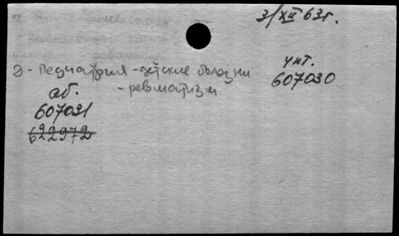 3/XII 63г.
2 - Педиатрия - детские болезни
- ревматизм
чит.
607030
аб.
607031
622972